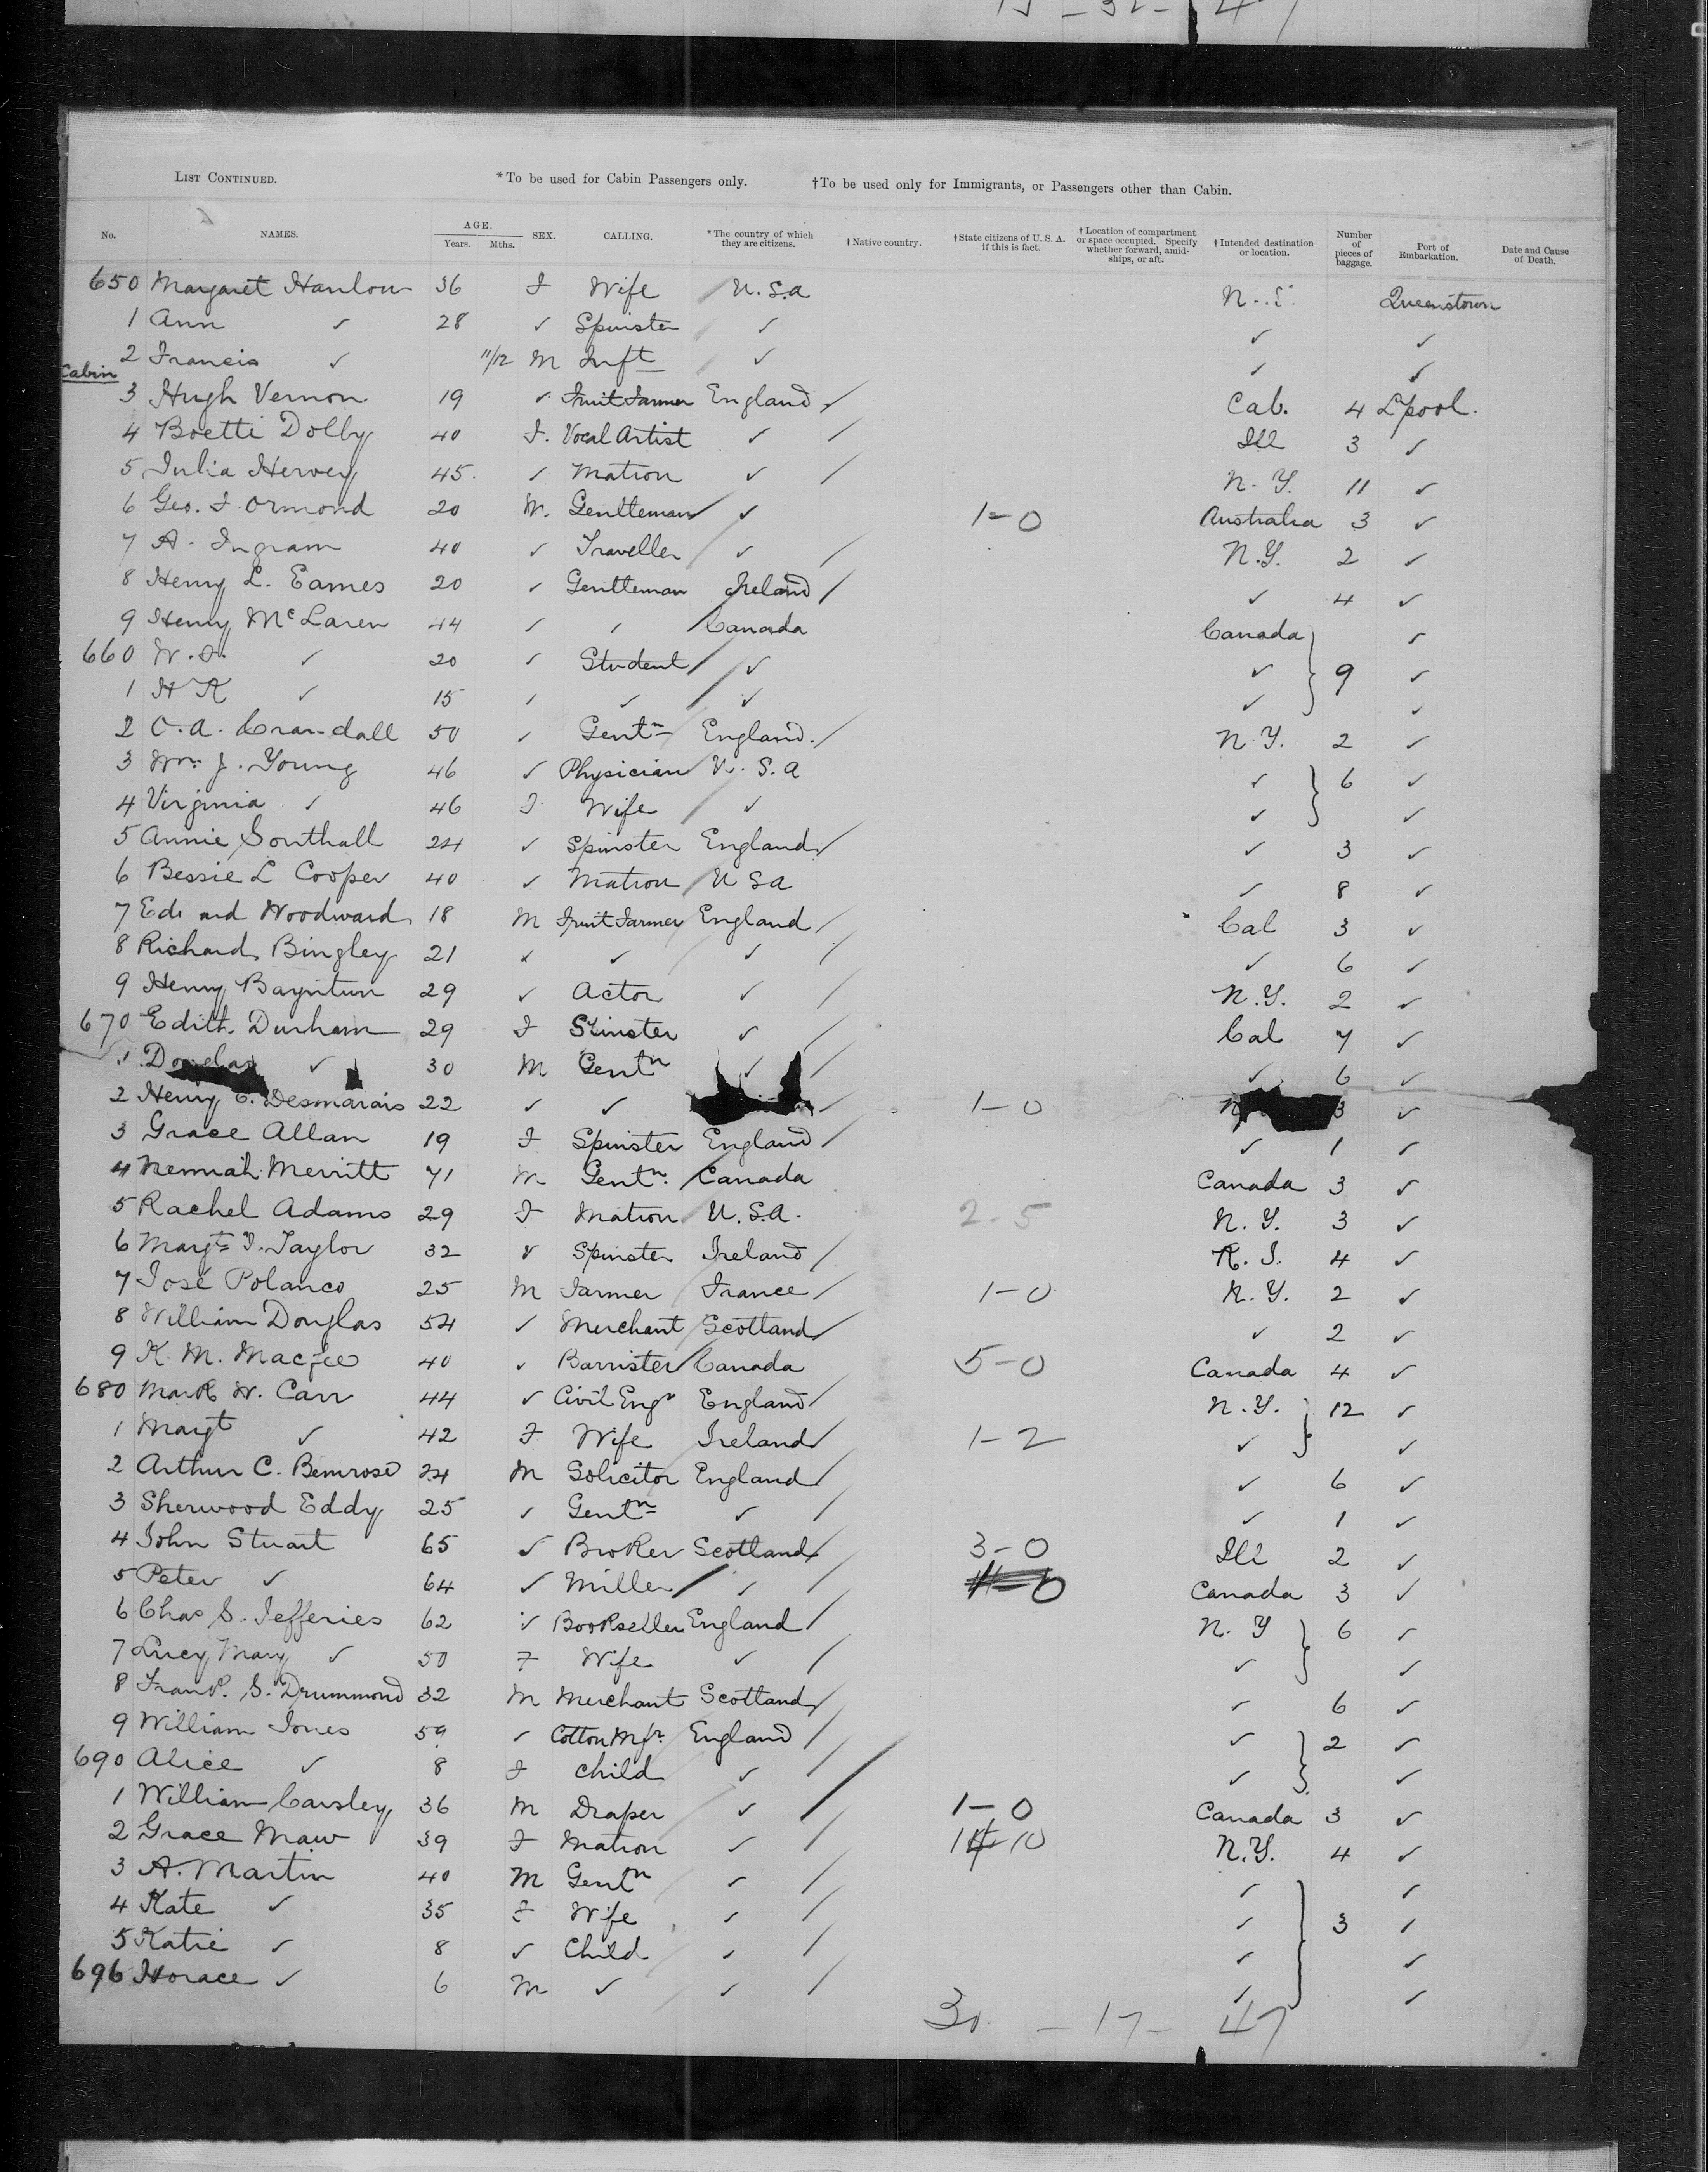 LIST CONTINUED. *To be used for Cabin Passengers only. †To be used only for Immigrants, or Passengers other than Cabin.
No. NAMES. AGE. Years. Mths. SEX. CALLING. *The country of which they are citizens. †Native country. †State citizens of U. S. A. if this is fact. †Location of compartment or space occupied. Specify whether forward, amidships, or aft. †Intended destination or location. Number of pieces of baggage. Port of Embarkation. Date and Cause of Death.
650 Margaret Hanlon 36 F Wife U.S.A N. Queenstown
1 Ann ✓ 28 ✓ Spinster ✓ ✓ ✓
2 Francis ✓ 11/12 M Inft ✓ ✓ ✓
Cabin
3 Hugh Vernon 19 ✓ Fruit Farmer England Cal. 4 L'pool.
4 Boetti Dolby 40 F. Vocal Artist ✓ Ill 3 ✓
5 Julia Hervey 45 ✓ Matron ✓ N.Y. 11 ✓
6 Geo. F. Ormond 20 M. Gentleman ✓ 1-0 Australia 3 ✓
7 A. Ingram 40 ✓ Traveller ✓ N.Y. 2 ✓
8 Henry L. Eames 20 ✓ Gentleman Ireland ✓ 4 ✓
9 Henry McLaren 44 ✓ ✓ Canada Canada ✓
660 W.F. ✓ 20 ✓ Student ✓ ✓ 9 ✓
1 H K ✓ 15 ✓ ✓ ✓ ✓ ✓
2 C.A. Crandall 50 ✓ Gentn England. N.Y. 2 ✓
3 Wm. J. Young 46 ✓ Physician U.S.A ✓ 6 ✓
4 Virginia ✓ 46 F Wife ✓ ✓ ✓
5 Annie Southall 24 ✓ Spinster England ✓ 3 ✓
6 Bessie L Cooper 40 ✓ Matron U S A ✓ 8 ✓
7 Edward Woodward 18 M Fruit Farmer England Cal 3 ✓
8 Richard Bingley 21 ✓ ✓ ✓ ✓ 6 ✓
9 Henry Bayntun 29 ✓ Actor ✓ N.Y. 2 ✓
670 Edith Durham 29 F Spinster ✓ Cal 7 ✓
1 Douglas ✓ 30 M Gentn ✓ ✓ 6 ✓
2 Henry C. Desmarais 22 ✓ ✓ 1-0 N 3 ✓
3 Grace Allan 19 F Spinster England ✓ 1 ✓
4 Merritt 71 M Gentn. Canada Canada 3 ✓
5 Rachel Adams 29 F Matron U.S.A. 2-5 N.Y. 3 ✓
6 Margt. F. Taylor 32 ✓ Spinster Ireland R.I. 4 ✓
7 José Polanco 25 M Farmer France 1-0 N.Y. 2 ✓
8 William Douglas 54 ✓ Merchant Scotland ✓ 2 ✓
9 K. M. Macfee 40 ✓ Barrister Canada 5-0 Canada 4 ✓
680 Mark W. Carr 44 ✓ Civil Engr England N.Y. 12 ✓
1 Margt ✓ 42 F Wife Ireland 1-2 ✓ ✓
2 Arthur C. Bemrose 24 M Solicitor England ✓ 6 ✓
3 Sherwood Eddy 25 ✓ Gentn ✓ ✓ 1 ✓
4 John Stuart 65 ✓ Broker Scotland 3-0 Ill 2 ✓
5 Peter ✓ 64 ✓ Miller ✓ Canada 3 ✓
6 Chas S. Jefferies 62 ✓ Bookseller England N.Y 6 ✓
7 Lucy Mary ✓ 50 F Wife ✓ ✓ ✓
8 Frank. S. Drummond 32 M Merchant Scotland ✓ 6 ✓
9 William Jones 59 ✓ Cotton Mfr. England ✓ 2 ✓
690 Alice ✓ 8 F Child ✓ ✓ ✓
1 William Carsley 36 M Draper ✓ 1-0 Canada 3 ✓
2 Grace Maw 39 F Matron ✓ N.Y. 4 ✓
3 A. Martin 40 M Gentn ✓ ✓ ✓
4 Kate ✓ 35 F Wife ✓ ✓ 3 ✓
5 Katie ✓ 8 ✓ Child ✓ ✓ ✓
696 Horace ✓ 6 M ✓ ✓ ✓ ✓
30 - 17 - 47